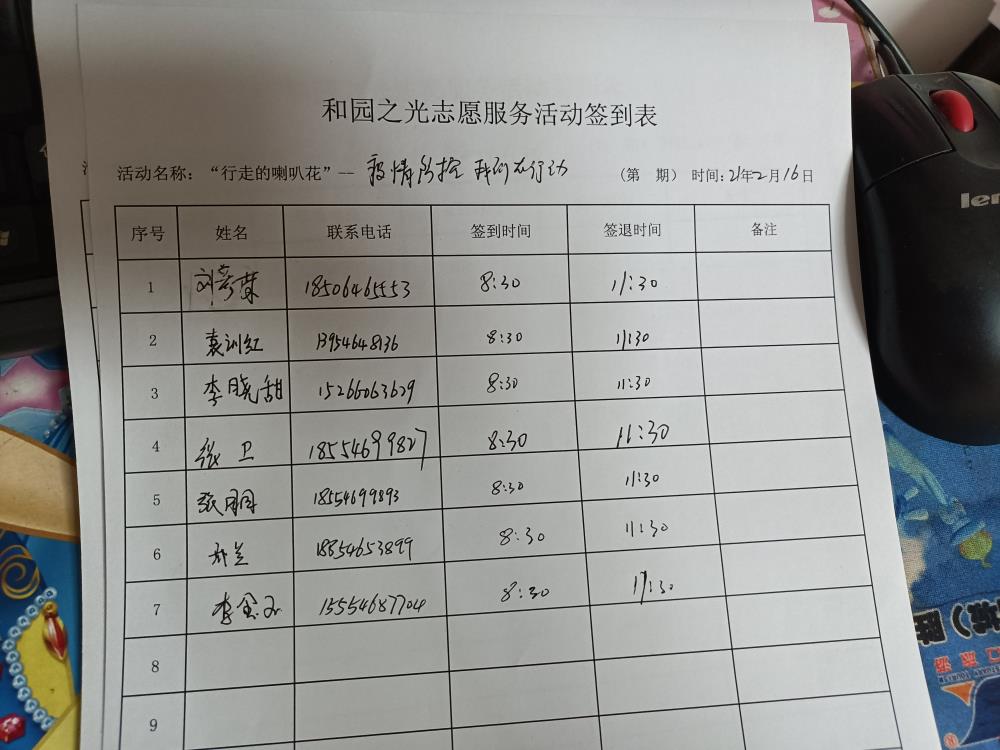 和园之光志愿服务活动签到表
活动名称：“行走的喇叭花”-- 疫情防控 我们在行动 （第 期） 时间：21年2月16日
序号 姓名 联系电话 签到时间 签退时间 备注
1 刘 荣 18506465553 8:30 11:30
2 袁训红 13954648136 8:30 11:30
3 李晓甜 15266063629 8:30 11:30
4 张卫 18554699827 8:30 11:30
5 张鹏 18554699893 8:30 11:30
6 18854653899 8:30 11:30
7 李金 15554687704 8:30 11:30
8
9
len